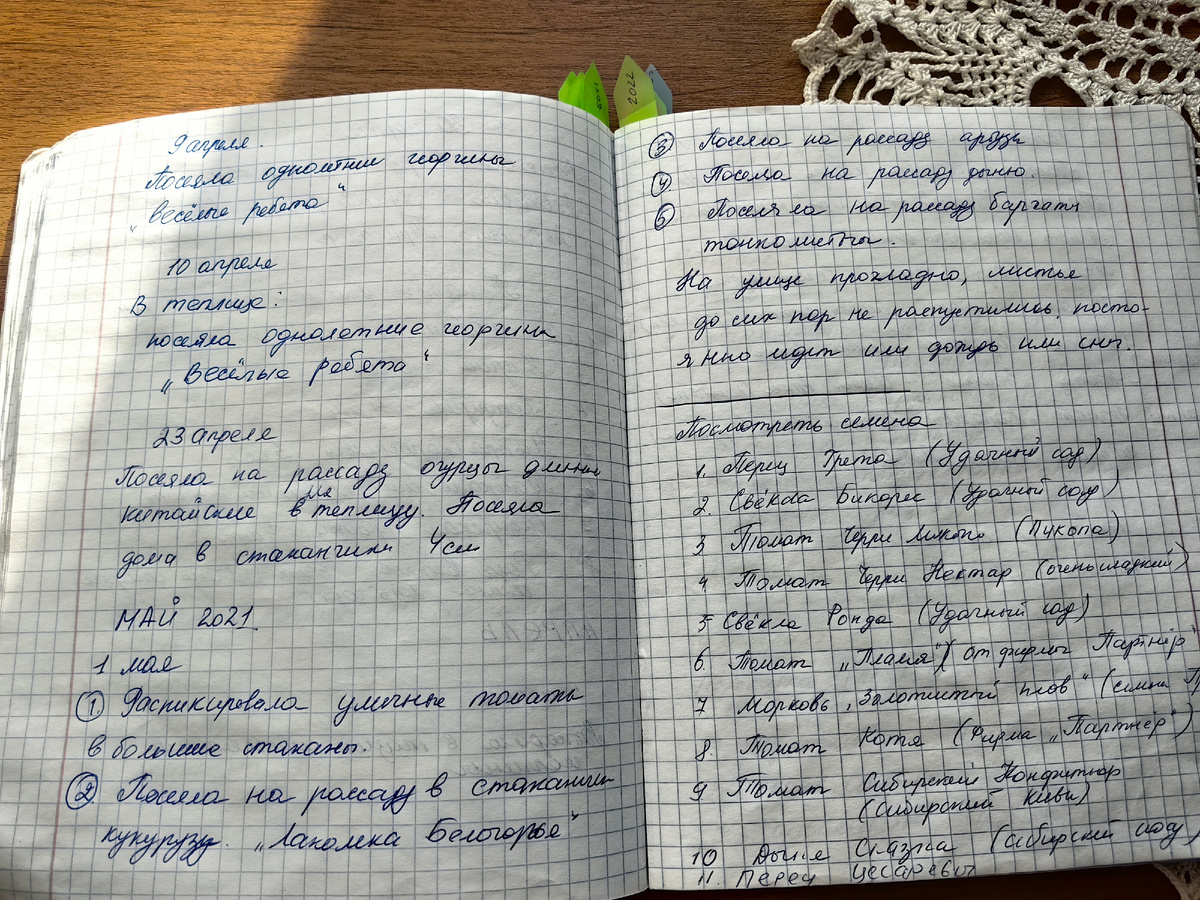 2022
9 апреля.
Посеяла однолетние георгины
„Весёлые ребята"
10 апреля
В теплице:
посеяла однолетние георгины
„Весёлые ребята"
23 апреля
Посеяла на рассаду огурцы длинные
китайские в теплицу. Посеяла
дома в стаканчики 4см
МАЙ 2021
1 мая
① Распикировала уличные томаты
в большие стаканы.
② Посеяла на рассаду в стаканчики
кукурузу. „Лакомка Белогорья"
③ Посеяла на рассаду арбузы
④ Посеяла на рассаду дыню
⑤ Посеяла на рассаду бархатцы
тонколистны.
На улице прохладно, листья
до сих пор не распустились, посто-
янно идет или дождь или снег.
Посмотреть семена
1. Перец Грета (Удачный сад)
2. Свёкла Бикорес (Удачный сад)
3 Томат Черри Ликопа (Ликопа)
4 Томат Черри Нектар (очень сладкий)
5 Свёкла Ронда (Удачный сад)
6. Томат „Пламя") от фирмы Партнёр"
7 Морковь „Золотистый плов" (семена
8. Томат Котя (Фирма „Партнёр")
9. Томат Сибирский Конфитюр
(Сибирский
10 Дыня Сказка (Сибирский сад)
11. Перец Цесаревич